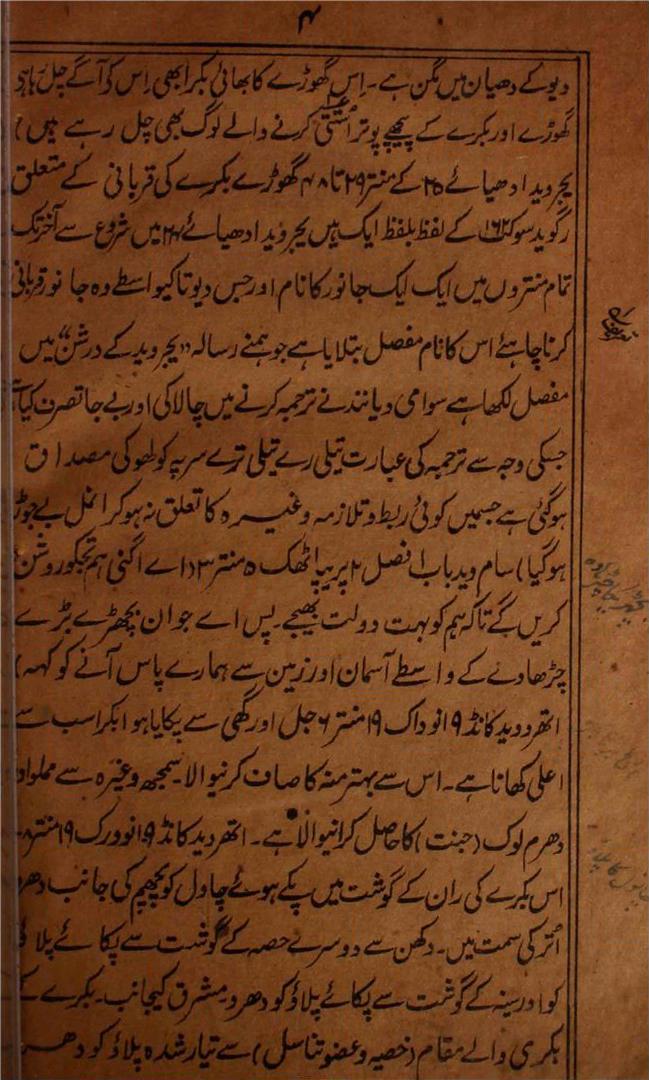 ۴
دیو کے دھیان میں مگن ہے۔ اِس گھوڑے کا بھائی بکرا بھی اِس کو آگے چل رہا
گھوڑے اور بکرے کے پیچھے پوتر اُستتی کرنے والے لوگ بھی چل رہے ہیں)
یجروید ادھیائے ۲۵ کے منتر ۲۹ تا ۴۸ گھوڑے بکرے کی قربانی کے متعلق
رگوید سوکت ۱۶۲ کے لفظ بلفظ ایک ہیں یجروید ادھیائے ۲۴ میں شروع سے آخر تک
تمام منتروں میں ایک ایک جانور کا نام اور جس دیوتا کیواسطے وہ جانور قربانی
کرنا چاہئے اس کا نام مفصل بتلایا ہے جو ہمنے رسالہ "یجروید کے درشن" میں
مفصل لکھا ہے سوامی دیانند نے ترجمہ کرنے میں چالاکی اور بے جا تصرف کیا
جسکی وجہ سے ترجمہ کی عبارت تیلی رے تیلی ترے سر پہ کولھو کی مصداق
ہو گئی ہے جسمیں کوئی ربط و تلازمہ وغیرہ کا تعلق نہ ہو کر انمل بے جوڑ
ہو گیا) سام وید باب ۱ فصل ۲ پرپاٹھک ۵ منتر ۳ (اے اگنی ہم تجکو روشن
کریں گے تاکہ ہم کو بہت دولت بھیجے۔ پس اے جوان بچھڑے بڑے
چڑھاوے کے واسطے آسمان اور زمین سے ہمارے پاس آنے کو کہہ)
اتھروید کانڈ ۹ انوواک ۱۹ منتر ۶ جل اور گھی سے پکایا ہوا بکرا سب سے
اعلی کھانا ہے۔ اس سے بہتر منہ کا صاف کرنیوالا۔ سمجھ وغیرہ سے مملو اور
دھرم لوک (جنت) کا حاصل کرانیوالا ہے۔ اتھروید کانڈ ۹ انوورک ۱۹ منتر ۸
اس بکرے کی ران کے گوشت میں پکے ہوئے چاول کو پچھم کی جانب دھر
اُتر کی سمت میں۔ دکھن سے دوسرے حصہ کے گوشت سے پکائے پلاؤ
کو اور سینہ کے گوشت سے پکائے پلاؤ کو دھرو۔ مشرق کیجانب۔ بکرے کے
بکری والے مقام (خصیہ و عضو تناسل) سے تیار شدہ پلاؤ کو دھر